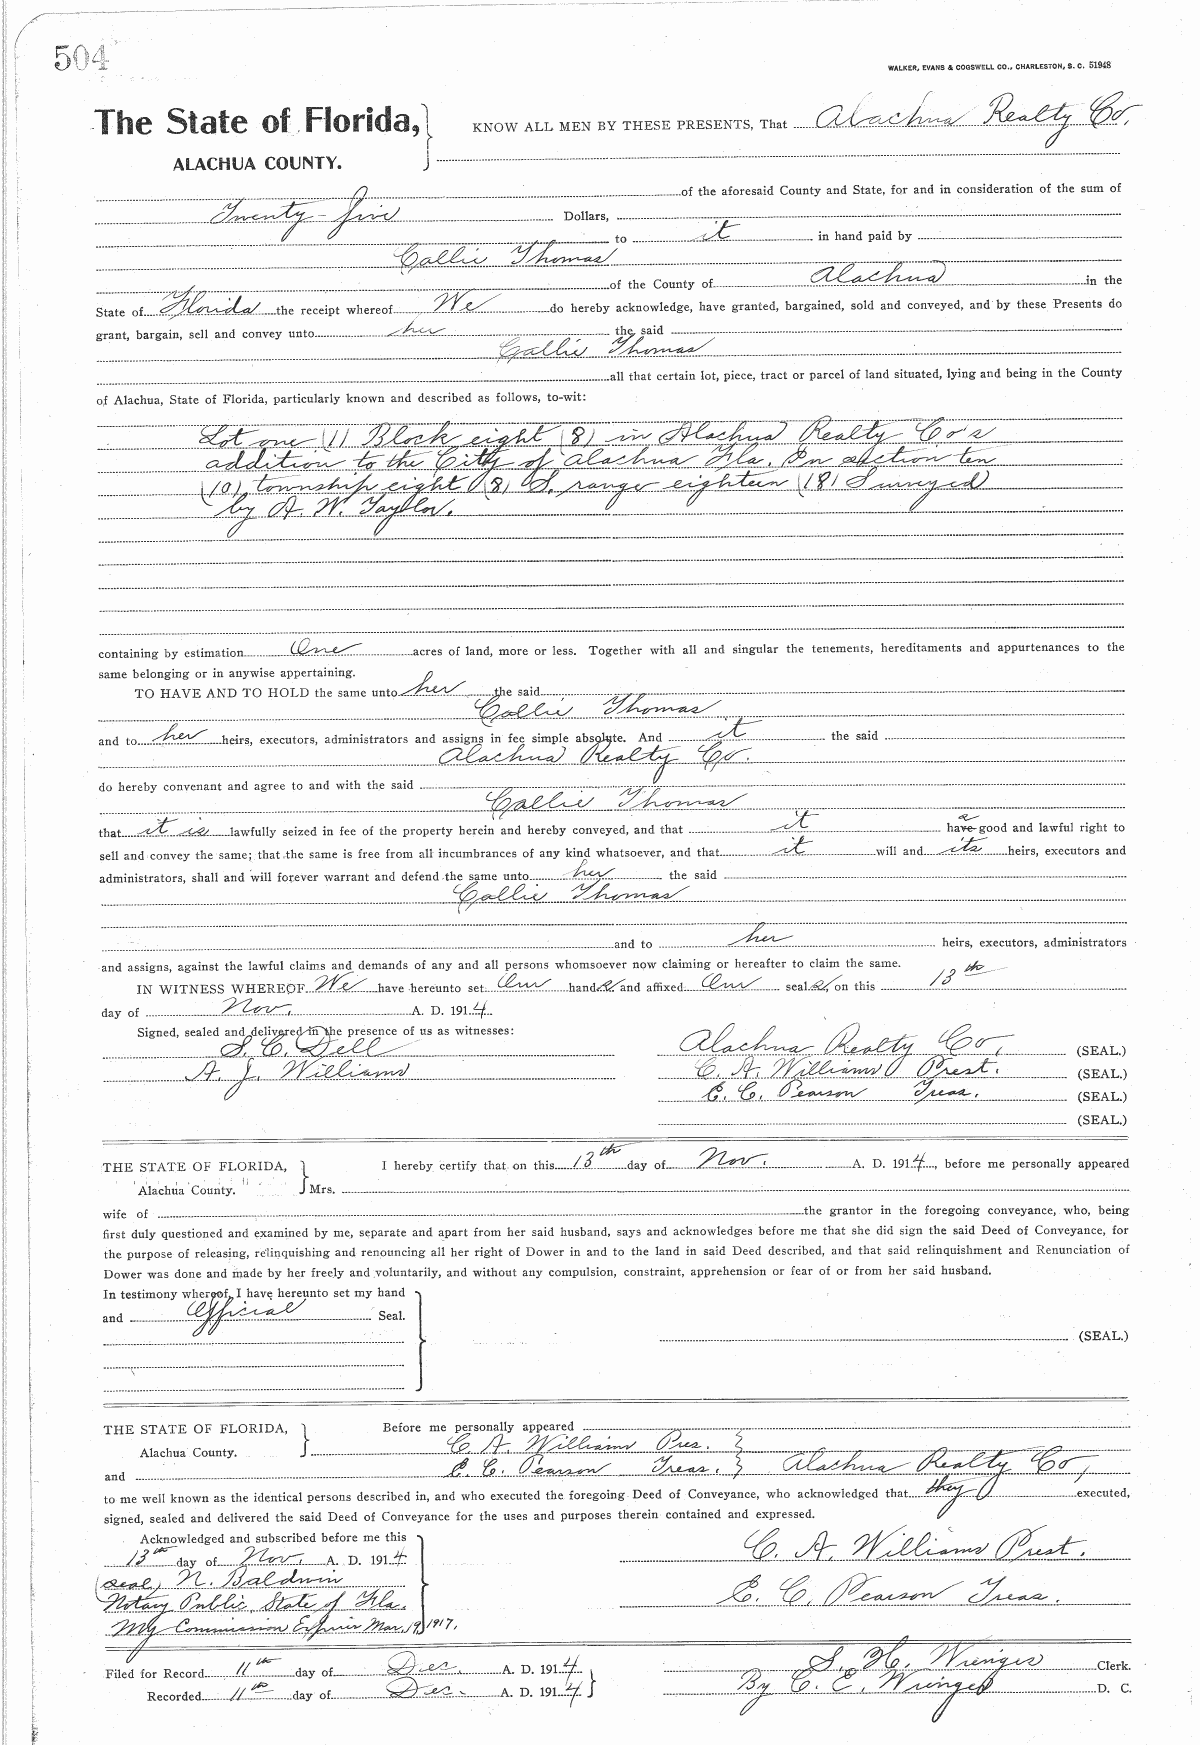 504
WALKER, EVANS & COGSWELL CO., CHARLESTON, S. C. 51948
The State of Florida, KNOW ALL MEN BY THESE PRESENTS, That Alachua Realty Co.
ALACHUA COUNTY.
of the aforesaid County and State, for and in consideration of the sum of
Twenty-five Dollars,
to it in hand paid by
Callie Thomas
of the County of Alachua in the
State of Florida the receipt whereof We do hereby acknowledge, have granted, bargained, sold and conveyed, and by these Presents do
grant, bargain, sell and convey unto her the said
Callie Thomas
all that certain lot, piece, tract or parcel of land situated, lying and being in the County
of Alachua, State of Florida, particularly known and described as follows, to-wit:
Lot one (1) Block eight (8) in Alachua Realty Co's
addition to the City of Alachua Fla. In section ten
(10) township eight (8) S. range eighteen (18) Surveyed
by A. W. Taylor.
containing by estimation One acres of land, more or less. Together with all and singular the tenements, hereditaments and appurtenances to the
same belonging or in anywise appertaining.
TO HAVE AND TO HOLD the same unto her the said
Callie Thomas
and to her heirs, executors, administrators and assigns in fee simple absolute. And it the said
Alachua Realty Co.
do hereby convenant and agree to and with the said
Callie Thomas
that it is lawfully seized in fee of the property herein and hereby conveyed, and that it have good and lawful right to
sell and convey the same; that the same is free from all incumbrances of any kind whatsoever, and that it will and its heirs, executors and
administrators, shall and will forever warrant and defend the same unto her the said
Callie Thomas
and to her heirs, executors, administrators
and assigns, against the lawful claims and demands of any and all persons whomsoever now claiming or hereafter to claim the same.
IN WITNESS WHEREOF We have hereunto set Our hands and affixed Our seals, on this 13th
day of Nov. A. D. 1914.
Signed, sealed and delivered in the presence of us as witnesses:
S. C. Dell Alachua Realty Co, (SEAL.)
A. J. Williams C. A. Williams Prest. (SEAL.)
E. C. Pearson Treas. (SEAL.)
(SEAL.)
THE STATE OF FLORIDA, I hereby certify that on this 13th day of Nov. A. D. 1914, before me personally appeared
Alachua County. Mrs.
wife of the grantor in the foregoing conveyance, who, being
first duly questioned and examined by me, separate and apart from her said husband, says and acknowledges before me that she did sign the said Deed of Conveyance, for
the purpose of releasing, relinquishing and renouncing all her right of Dower in and to the land in said Deed described, and that said relinquishment and Renunciation of
Dower was done and made by her freely and voluntarily, and without any compulsion, constraint, apprehension or fear of or from her said husband.
In testimony whereof, I have hereunto set my hand
and Official Seal.
(SEAL.)
THE STATE OF FLORIDA, Before me personally appeared
Alachua County. C. A. Williams Pres.
and E. C. Pearson Treas. Alachua Realty Co,
to me well known as the identical persons described in, and who executed the foregoing Deed of Conveyance, who acknowledged that they executed,
signed, sealed and delivered the said Deed of Conveyance for the uses and purposes therein contained and expressed.
Acknowledged and subscribed before me this
13th day of Nov. A. D. 1914 C. A. Williams Prest.
(seal) N. Baldwin
Notary Public, State of Fla. E. C. Pearson Treas.
My Commission Expires Mar. 19, 1917.
Filed for Record 11th day of Dec. A. D. 1914 S. H. Wienges Clerk.
Recorded 11th day of Dec. A. D. 1914 By C. E. Wienges D. C.